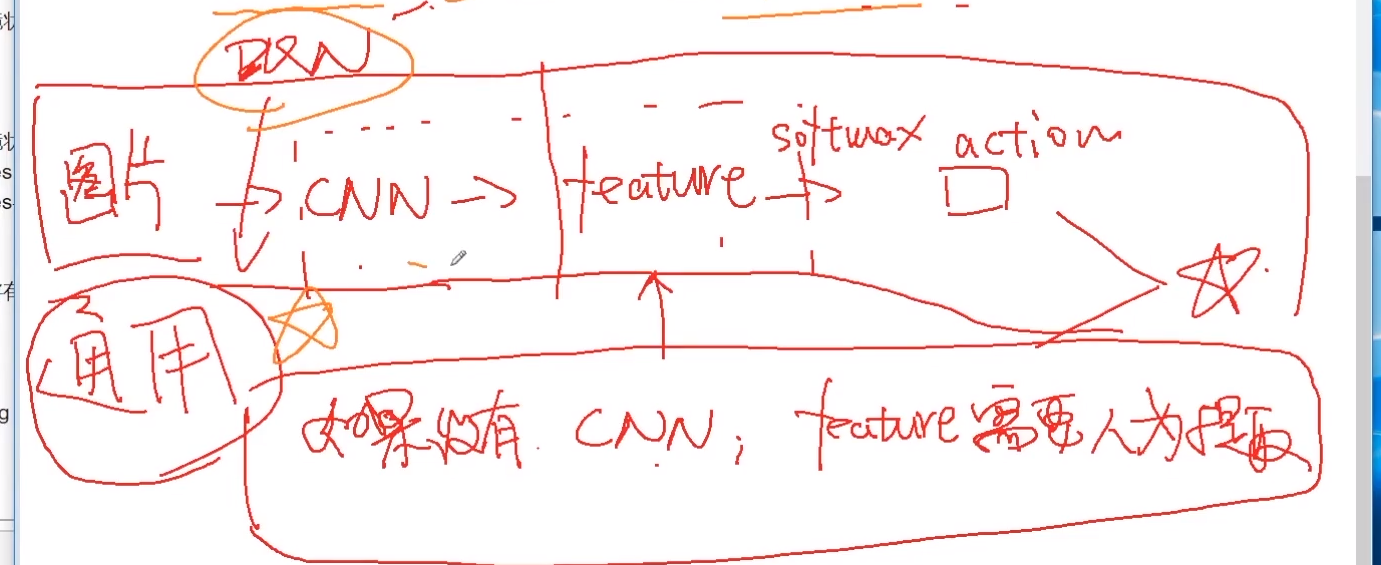 DQN
图片 → CNN → feature → softmax action
通用
如果没有 CNN, feature需要人为提取